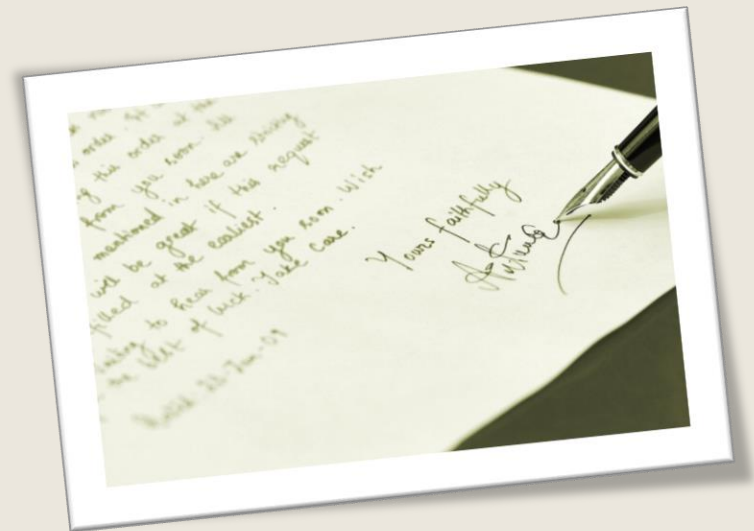 order. It
this order at the
from you soon. All
mentioned in here are
will be great if this request
filled at the earliest.
waiting to hear from you soon. Wish
the best of luck. Take Care.
Yours faithfully